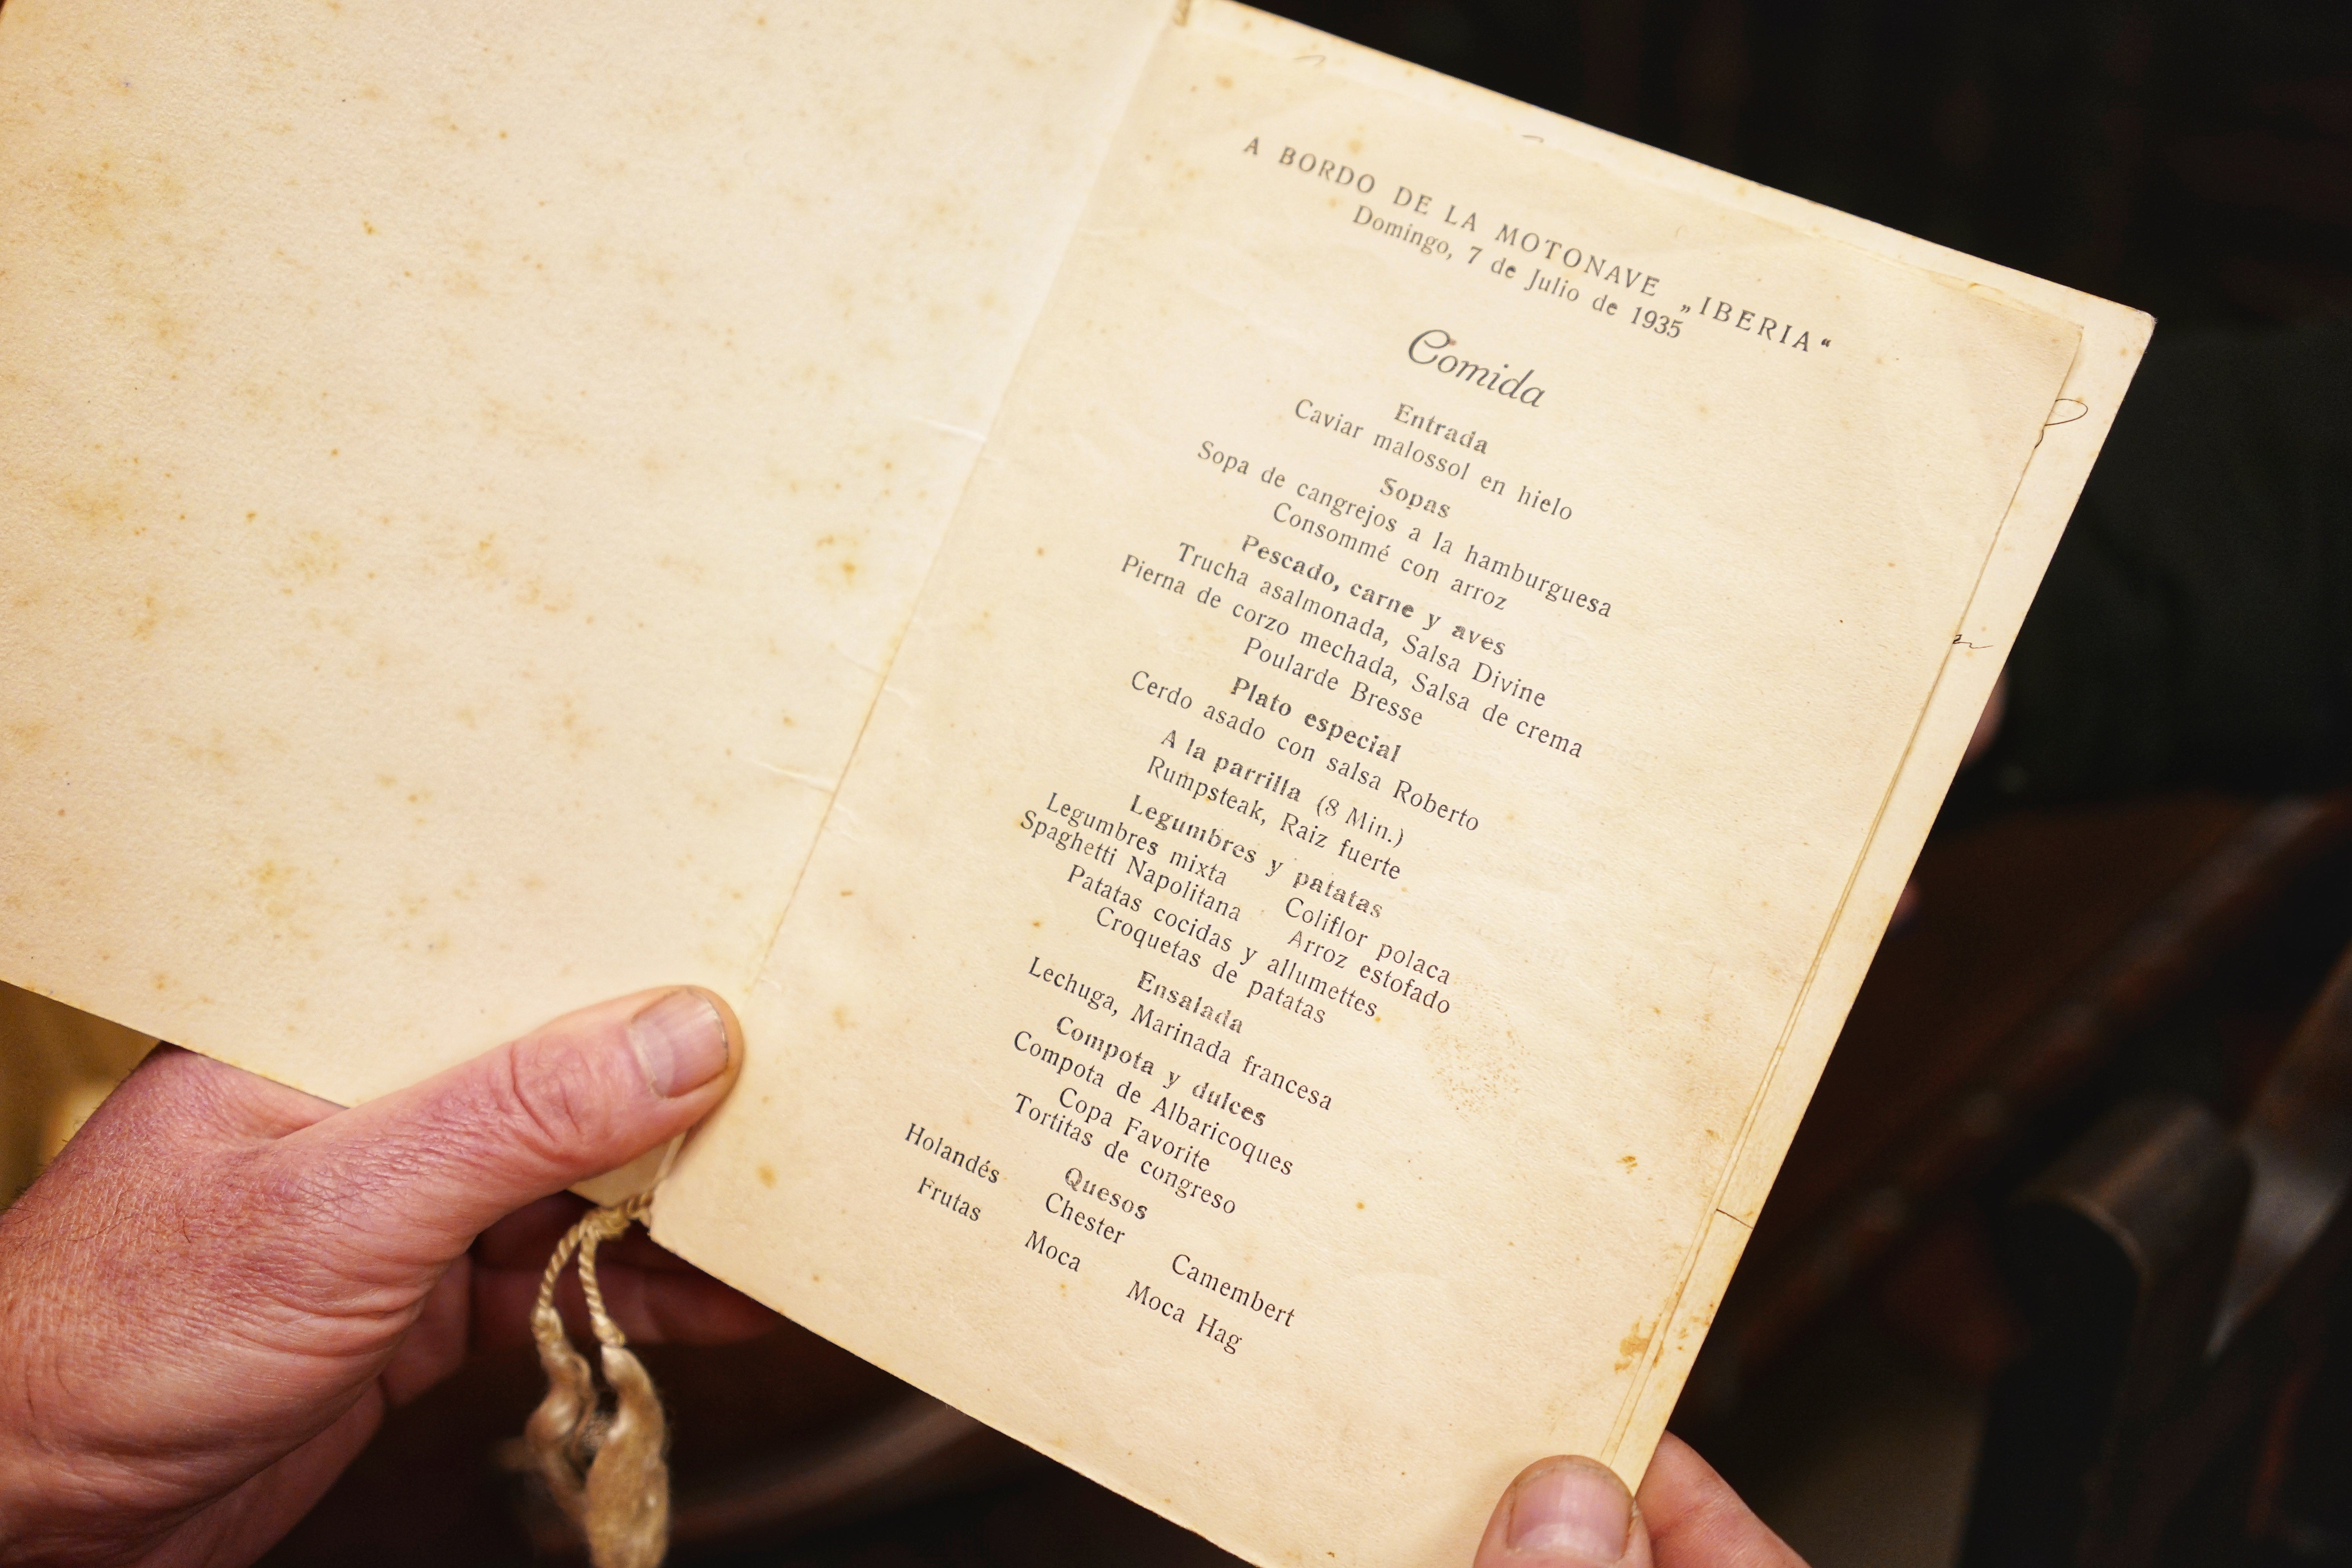 A BORDO DE LA MOTONAVE „IBERIA“
Domingo, 7 de Julio de 1935
Comida
Entrada
Caviar malossol en hielo
Sopas
Sopa de cangrejos a la hamburguesa
Consommé con arroz
Pescado, carne y aves
Trucha asalmonada, Salsa Divine
Pierna de corzo mechada, Salsa de crema
Poularde Bresse
Plato especial
Cerdo asado con salsa Roberto
A la parrilla (8 Min.)
Rumpsteak, Raiz fuerte
Legumbres y patatas
Legumbres mixta Coliflor polaca
Spaghetti Napolitana Arroz estofado
Patatas cocidas y allumettes
Croquetas de patatas
Ensalada
Lechuga, Marinada francesa
Compota y dulces
Compota de Albaricoques
Copa Favorite
Tortitas de congreso
Quesos
Holandés Chester Camembert
Frutas Moca Moca Hag